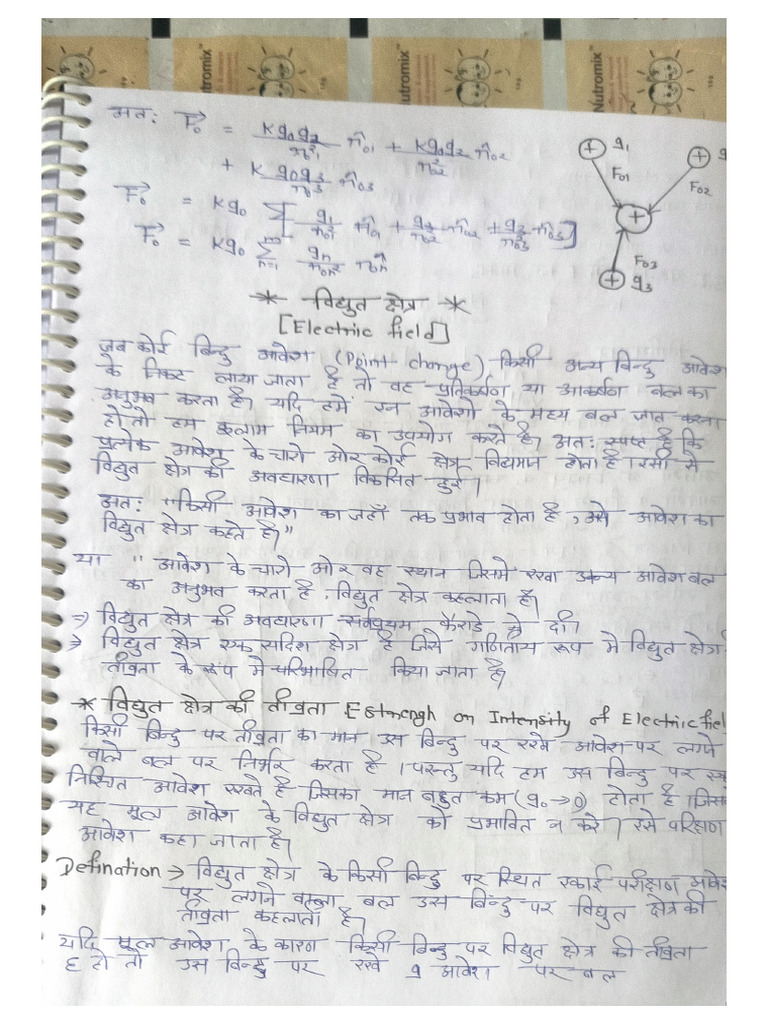 Nutromix™ Nutromix™ Nutromix™
अतः F₀→ = Kq₀q₂/r²₀₁ r̂₀₁ + Kq₀q₂/r²₀₂ r̂₀₂
+ K q₀q₃/r²₀₃ r̂₀₃
F₀→ = Kq₀ [q₁/r²₀₁ r̂₀₁ + q₂/r²₀₂ r̂₀₂ + q₃/r²₀₃ r̂₀₃]
F₀→ = Kq₀ Σ n=1 qn/r₀n² r̂₀n
q₁
F₀₁
F₀₂
F₀₃
q₃
* विद्युत क्षेत्र *
[Electric field]
जब कोई बिन्दु आवेश (Point charge) किसी अन्य बिन्दु आवेश
के निकट लाया जाता है तो वह प्रतिकर्षण या आकर्षण बल का
अनुभव करता है। यदि हमें इन आवेशो के मध्य बल ज्ञात करना
हो तो हम कूलाम नियम का उपयोग करते है। अतः स्पष्ट है कि
प्रत्येक आवेश के चारो ओर कोई क्षेत्र विद्यमान होता है। इसी से
विद्युत क्षेत्र की अवधारणा विकसित हुई।
अतः "किसी आवेश का जहाँ तक प्रभाव होता है, उसे आवेश का
विद्युत क्षेत्र कहते है।"
या " आवेश के चारो ओर वह स्थान जिसमे रखा अन्य आवेश बल
का अनुभव करता है, विद्युत क्षेत्र कहलाता है।
⇒ विद्युत क्षेत्र की अवधारणा सर्वप्रथम फैराडे ने दी।
⇒ विद्युत क्षेत्र एक सदिश क्षेत्र है जिसे गणितीय रूप मे विद्युत क्षेत्र
तीव्रता के रूप मे परिभाषित किया जाता है।
* विद्युत क्षेत्र की तीव्रता [Strengh on Intensity of Electric fiel
किसी बिन्दु पर तीव्रता का मान उस बिन्दु पर रखे आवेश पर लगने
वाले बल पर निर्भर करता है। परन्तु यदि हम उस बिन्दु पर
निश्चित आवेश रखते है जिसका मान बहुत कम (q₀→0) होता है। जिस
यह मूल आवेश के विद्युत क्षेत्र को प्रभावित न करे। इसे परिक्षण
आवेश कहा जाता है।
Defination ⇒ विद्युत क्षेत्र के किसी बिन्दु पर स्थित एकाई परीक्षण आवेश
पर लगने वाला बल उस बिन्दु पर विद्युत क्षेत्र की
तीव्रता कहलाता है।
यदि मूल आवेश के कारण किसी बिन्दु पर विद्युत क्षेत्र की तीव्रता
E हो तो उस बिन्दु पर रखे q आवेश पर बल